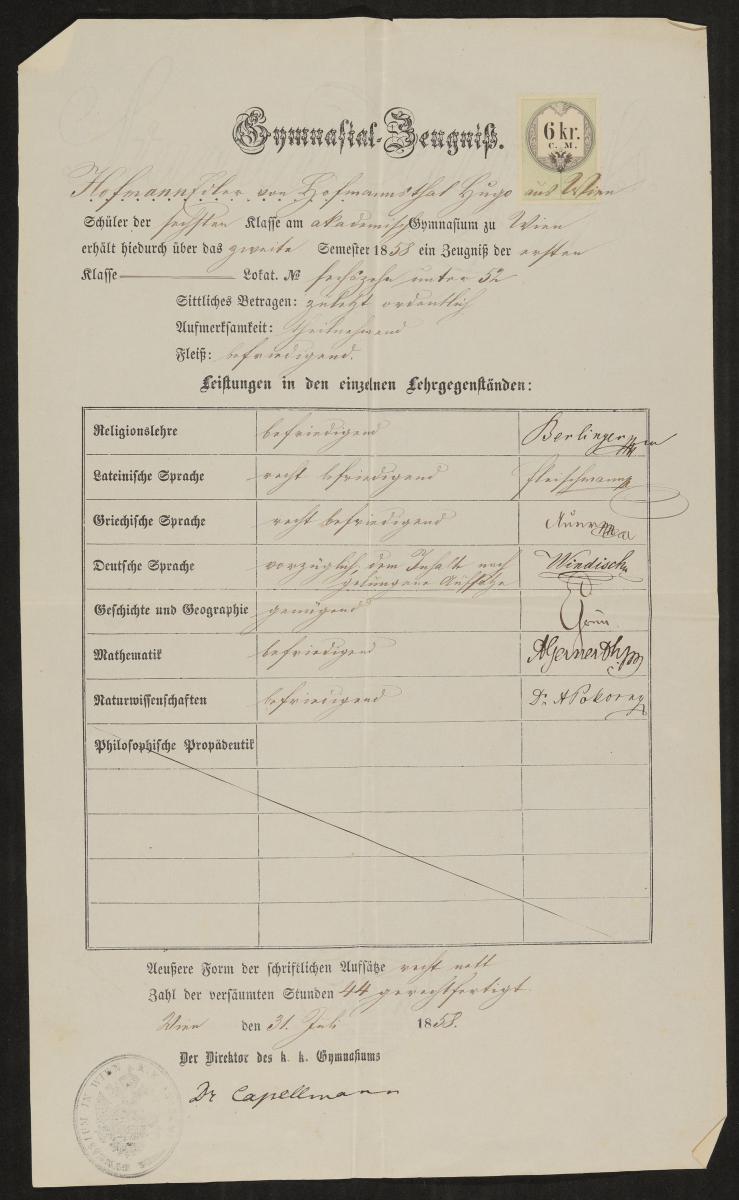 Gymnasial-Zeugniß.
6 kr.
C. M.
Hofmann Edler von Hofmannsthal Hugo aus Wien
Schüler der sechsten Klasse am akademisch Gymnasium zu Wien
erhält hiedurch über das zweite Semester 1858 ein Zeugniß der ersten
Klasse Lokat. № sechszehn unter 52
Sittliches Betragen: zuletzt ordentlich
Aufmerksamkeit: theilnehmend
Fleiß: befriedigend.
Leistungen in den einzelnen Lehrgegenständen:
Religionslehre befriedigend Berlinger
Lateinische Sprache recht befriedigend Fleischmann
Griechische Sprache recht befriedigend
Deutsche Sprache vorzüglich, dem Inhalte nach Windisch
gelungene Aufsätze
Geschichte und Geographie genügend Grün
Mathematik befriedigend
Naturwissenschaften befriedigend Dr A Pokorny
Philosophische Propädeutik
Aeußere Form der schriftlichen Aufsätze recht nett
Zahl der versäumten Stunden 44 gerechtfertigt.
Wien den 31. Juli 1858.
Der Direktor des k. k. Gymnasiums
Dr Capellmann
GYMNASIUM IN WIEN